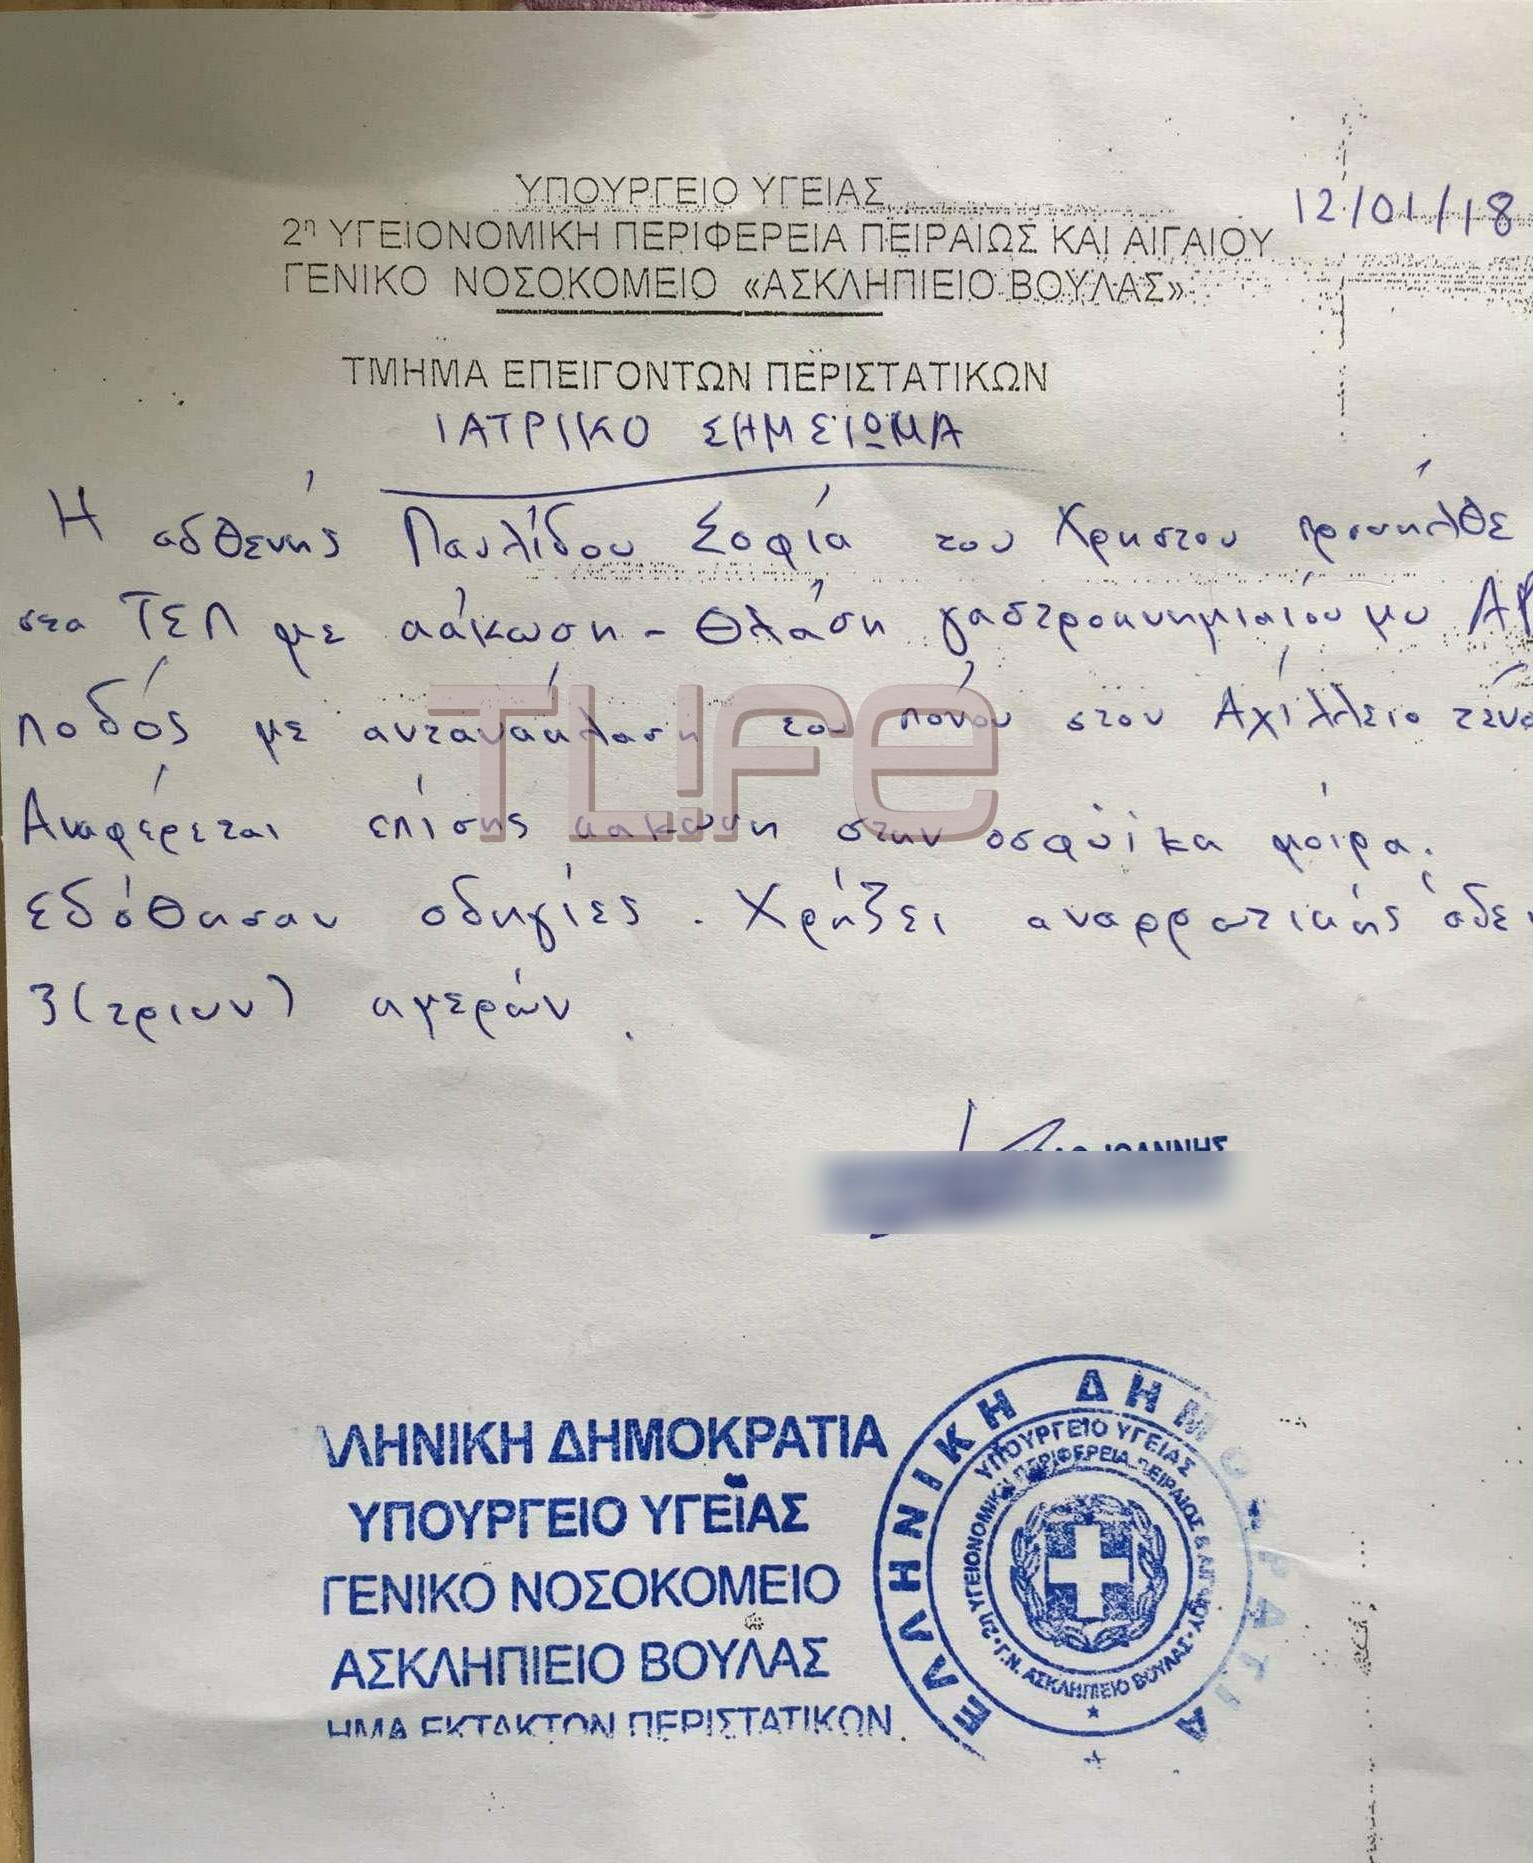 12/01/18
ΥΠΟΥΡΓΕΙΟ ΥΓΕΙΑΣ
2η ΥΓΕΙΟΝΟΜΙΚΗ ΠΕΡΙΦΕΡΕΙΑ ΠΕΙΡΑΙΩΣ ΚΑΙ ΑΙΓΑΙΟΥ
ΓΕΝΙΚΟ ΝΟΣΟΚΟΜΕΙΟ «ΑΣΚΛΗΠΙΕΙΟ ΒΟΥΛΑΣ»
ΤΜΗΜΑ ΕΠΕΙΓΟΝΤΩΝ ΠΕΡΙΣΤΑΤΙΚΩΝ
ΙΑΤΡΙΚΟ ΣΗΜΕΙΩΜΑ
Η ασθενής Παυλίδου Σοφία του Χρηστου προσήλθε
στα ΤΕΠ με κάκωση - Θλάση γαστροκνημιαίου μυ ΑΡ
ποδός με αντανάκλαση του πόνου στον Αχίλλειο τένο
Αναφέρεται επίσης κακωση στην οσφυϊκα μοίρα.
εδόθησαν οδηγίες. Χρήζει αναρρωτικής άδει
3 (τριων) ημερών.
ΙΩΑΝΝΗΣ
TLiFe
ΛΛΗΝΙΚΗ ΔΗΜΟΚΡΑΤΙΑ
ΥΠΟΥΡΓΕΙΟ ΥΓΕΙΑΣ
ΓΕΝΙΚΟ ΝΟΣΟΚΟΜΕΙΟ
ΑΣΚΛΗΠΙΕΙΟ ΒΟΥΛΑΣ
ΗΜΑ ΕΚΤΑΚΤΩΝ ΠΕΡΙΣΤΑΤΙΚΩΝ
ΕΛΛΗΝΙΚΗ ΔΗΜΟΚΡΑΤΙΑ
ΥΠΟΥΡΓΕΙΟ ΥΓΕΙΑΣ
2η ΥΓΕΙΟΝΟΜΙΚΗ ΠΕΡΙΦΕΡΕΙΑ ΠΕΙΡΑΙΩΣ & ΑΙΓΑΙΟΥ
Γ.Ν. ΑΣΚΛΗΠΙΕΙΟ ΒΟΥΛΑΣ